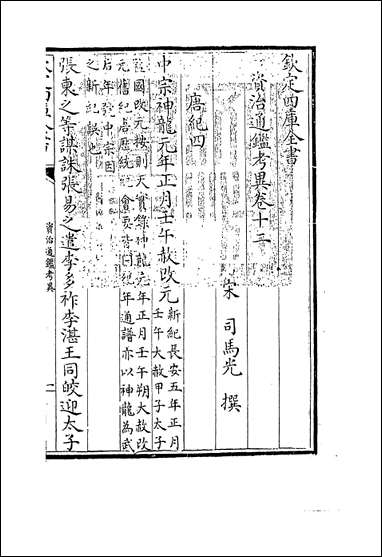 欽定四庫全書
資治通鑑考異卷十二
宋 司馬光 撰
唐紀四
中宗神龍元年正月壬午赦改元
新紀長安五年正月
壬午大赦甲子太子
監國改元按則天實錄神龍元年正月壬午朔大赦改
元舊紀唐歷統紀會要皆同紀年通譜亦以神龍為武
后年號中宗因
之新紀誤也
張柬之等謀誅張易之遣李多祚李湛王同皎迎太子
資治通鑑考異